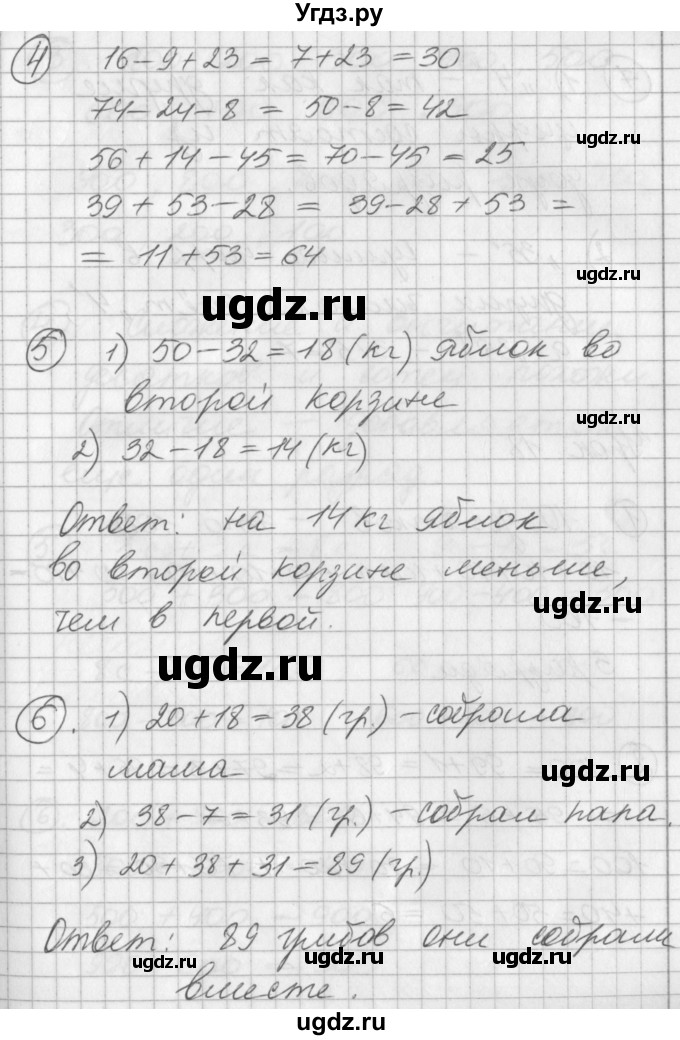 Угдз.ру
4 16-9+23 = 7+23 = 30
74-24-8 = 50-8 = 42
ugdz.ru
56+14-45 = 70-45 = 25
39+53-28 = 39-28+53 =
= 11+53 = 64
ugdz.ru
ugdz.ru
5 1) 50-32 = 18 (кг) яблок во
второй корзине
ugdz.ru
2) 32-18 = 14 (кг)
Ответ: на 14 кг яблок
во второй корзине меньше,
ugdz.ru
чем в первой.
ugdz.ru
6. 1) 20+18 = 38 (гр.) - собрала
мама
2) 38-7 = 31 (гр.) - собрал папа.
3) 20+38+31 = 89 (гр.)
Ответ: 89 грибов они собрали
ugdz.ru ugdz.ru ugdz.ru
вместе.
ugdz.ru